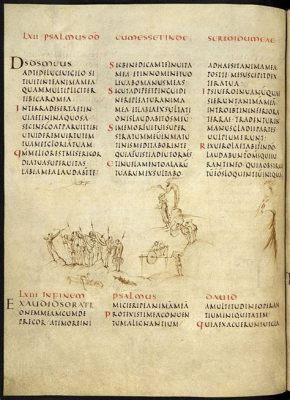 LXII PSALMUS DD CUMESSETINDE SERTOIDUMEAE
DSDSMEUS
ADTEDELUCEUIGILO SI
TIUITINTEANIMAMEA
QUAMMULTIPLICITER
TIBICAROMEA
INTERRADESERTAIN
UIAETINAQUOSA
SICINSCOAPPARUITIBI
UTUIDEREMUIRTUTE
TUAMETGLORIATUAM
QMMELIORESTMISERICOR
DIATUASUPERUITAS
LABIAMEALAUDABTTE
SICBENEDICAMTEINUITA
MEA ETINNOMINETUO
LEUABOMANUSMEAS
SICUTADIPEETPINGUEDI
NEREPLEATURANIMA
MEA ETLABIAEXSULTATI
ONISLAUDABITOSMEU
SIMEMORFUITUISUPER
STRATUMMEUMINMATU
TINISMEDITABORINTE
QUIAFUISTIADIUTORMS
ADHAESITANIMAMEA
POSTTE MESUSCEPITDEX
TERATUA
IPSIUEROINUANUMQUAE
SIERUNTANIMAMMEA
INTROIBUNTININFERIORA
TERRAE TRADENTURIN
MANUSGLADIIPARTES
UULPIUMERUNT
REXUEROLAETABITINDO
LAUDABUNTOMSQUIIU
RANTINEO QUIAOBSTRUC
TUESTOSLOQUENTIUINIQUA
LXIII INFINEM PSALMUS DAUID
EXAUDIDSORATI
ONEMMEAMCUMDE
PRECOR ATIMOREINI
MICIERIPEANIMAMEA
PROTEXISTIMEACONUEN
TUMALIGNANTIUM
AMULTITUDINEOPERAN
TIUMINIQUITATEM
QUIAEXACUERUNT